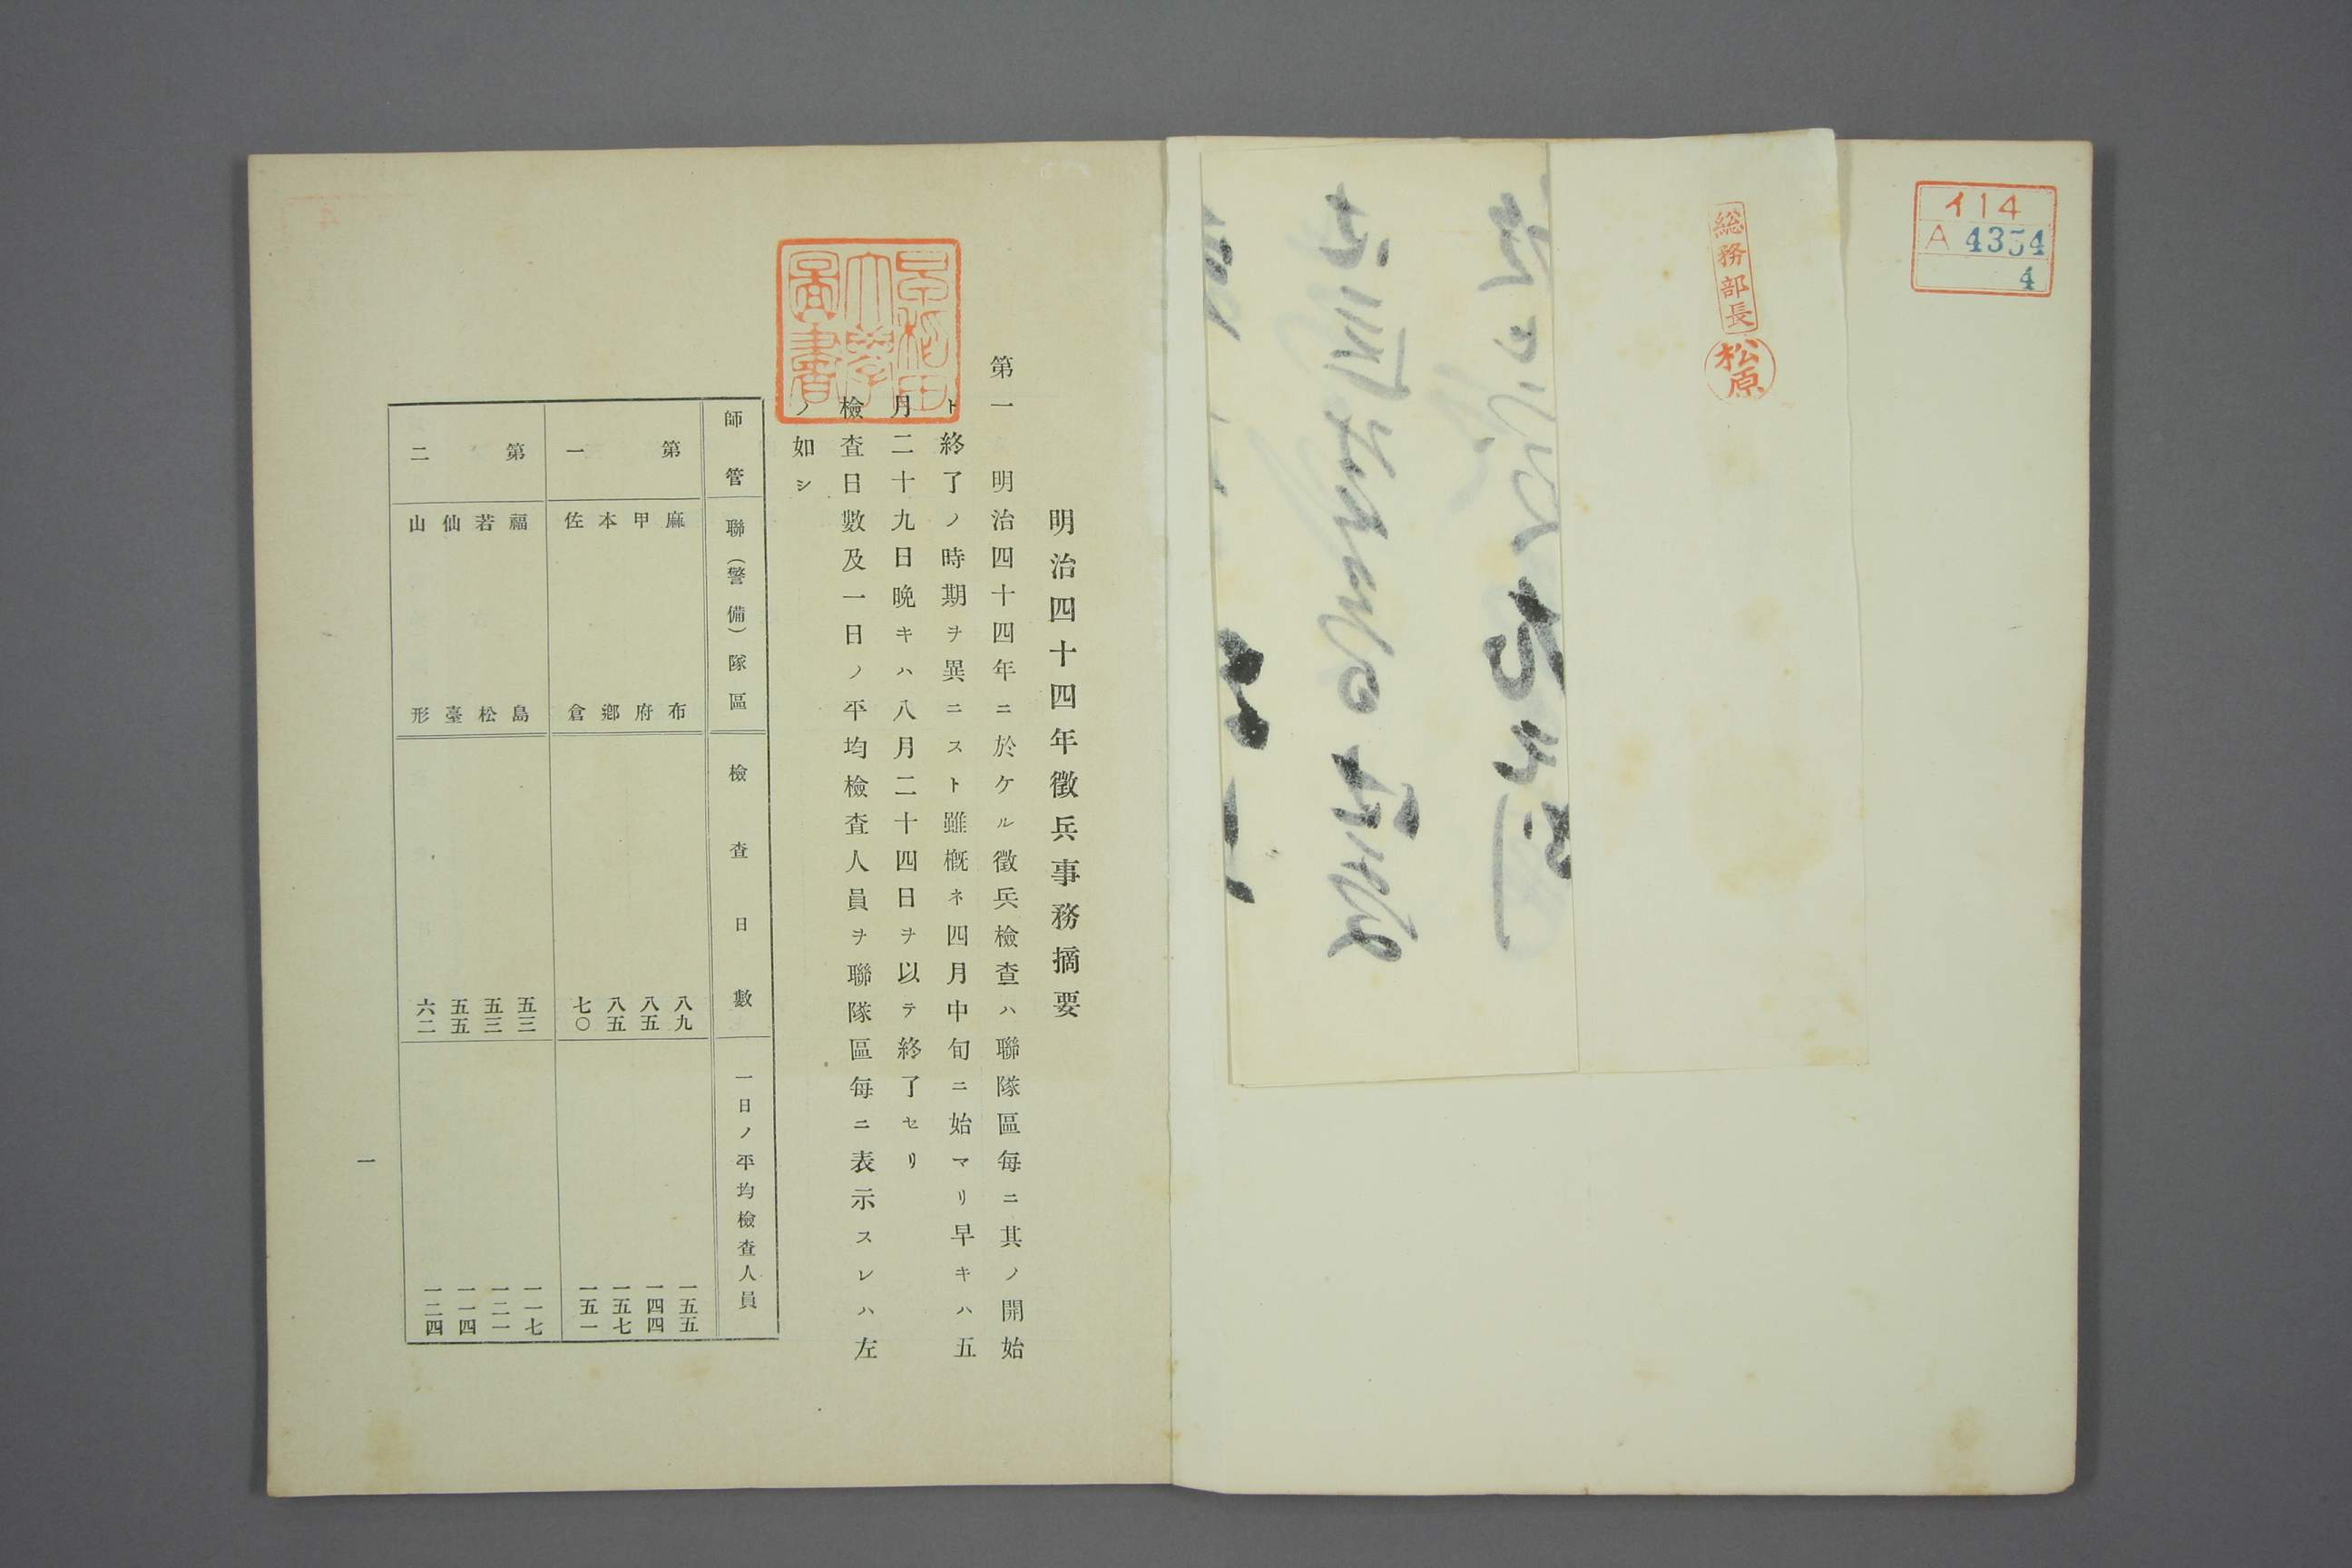 イ14
A 4354
4
総務部長
松原
早稲田大學圖書
明治四十四年徴兵事務摘要
第一 明治四十四年ニ於ケル徴兵檢査ハ聯隊區毎ニ其ノ開始
ト終了ノ時期ヲ異ニスト雖概ネ四月中旬ニ始マリ早キハ五
月二十九日晩キハ八月二十四日ヲ以テ終了セリ
檢査日數及一日ノ平均檢査人員ヲ聯隊區毎ニ表示スレハ左
ノ如シ
師管
聯(警備)隊區
檢査日數
一日ノ平均檢査人員
第一
麻布 八九 一五五
甲府 八五 一四四
本鄕 八五 一五七
佐倉 七〇 一五一
第二
福島 五三 一一七
若松 五三 一二一
仙臺 五五 一一四
山形 六二 一二四
一